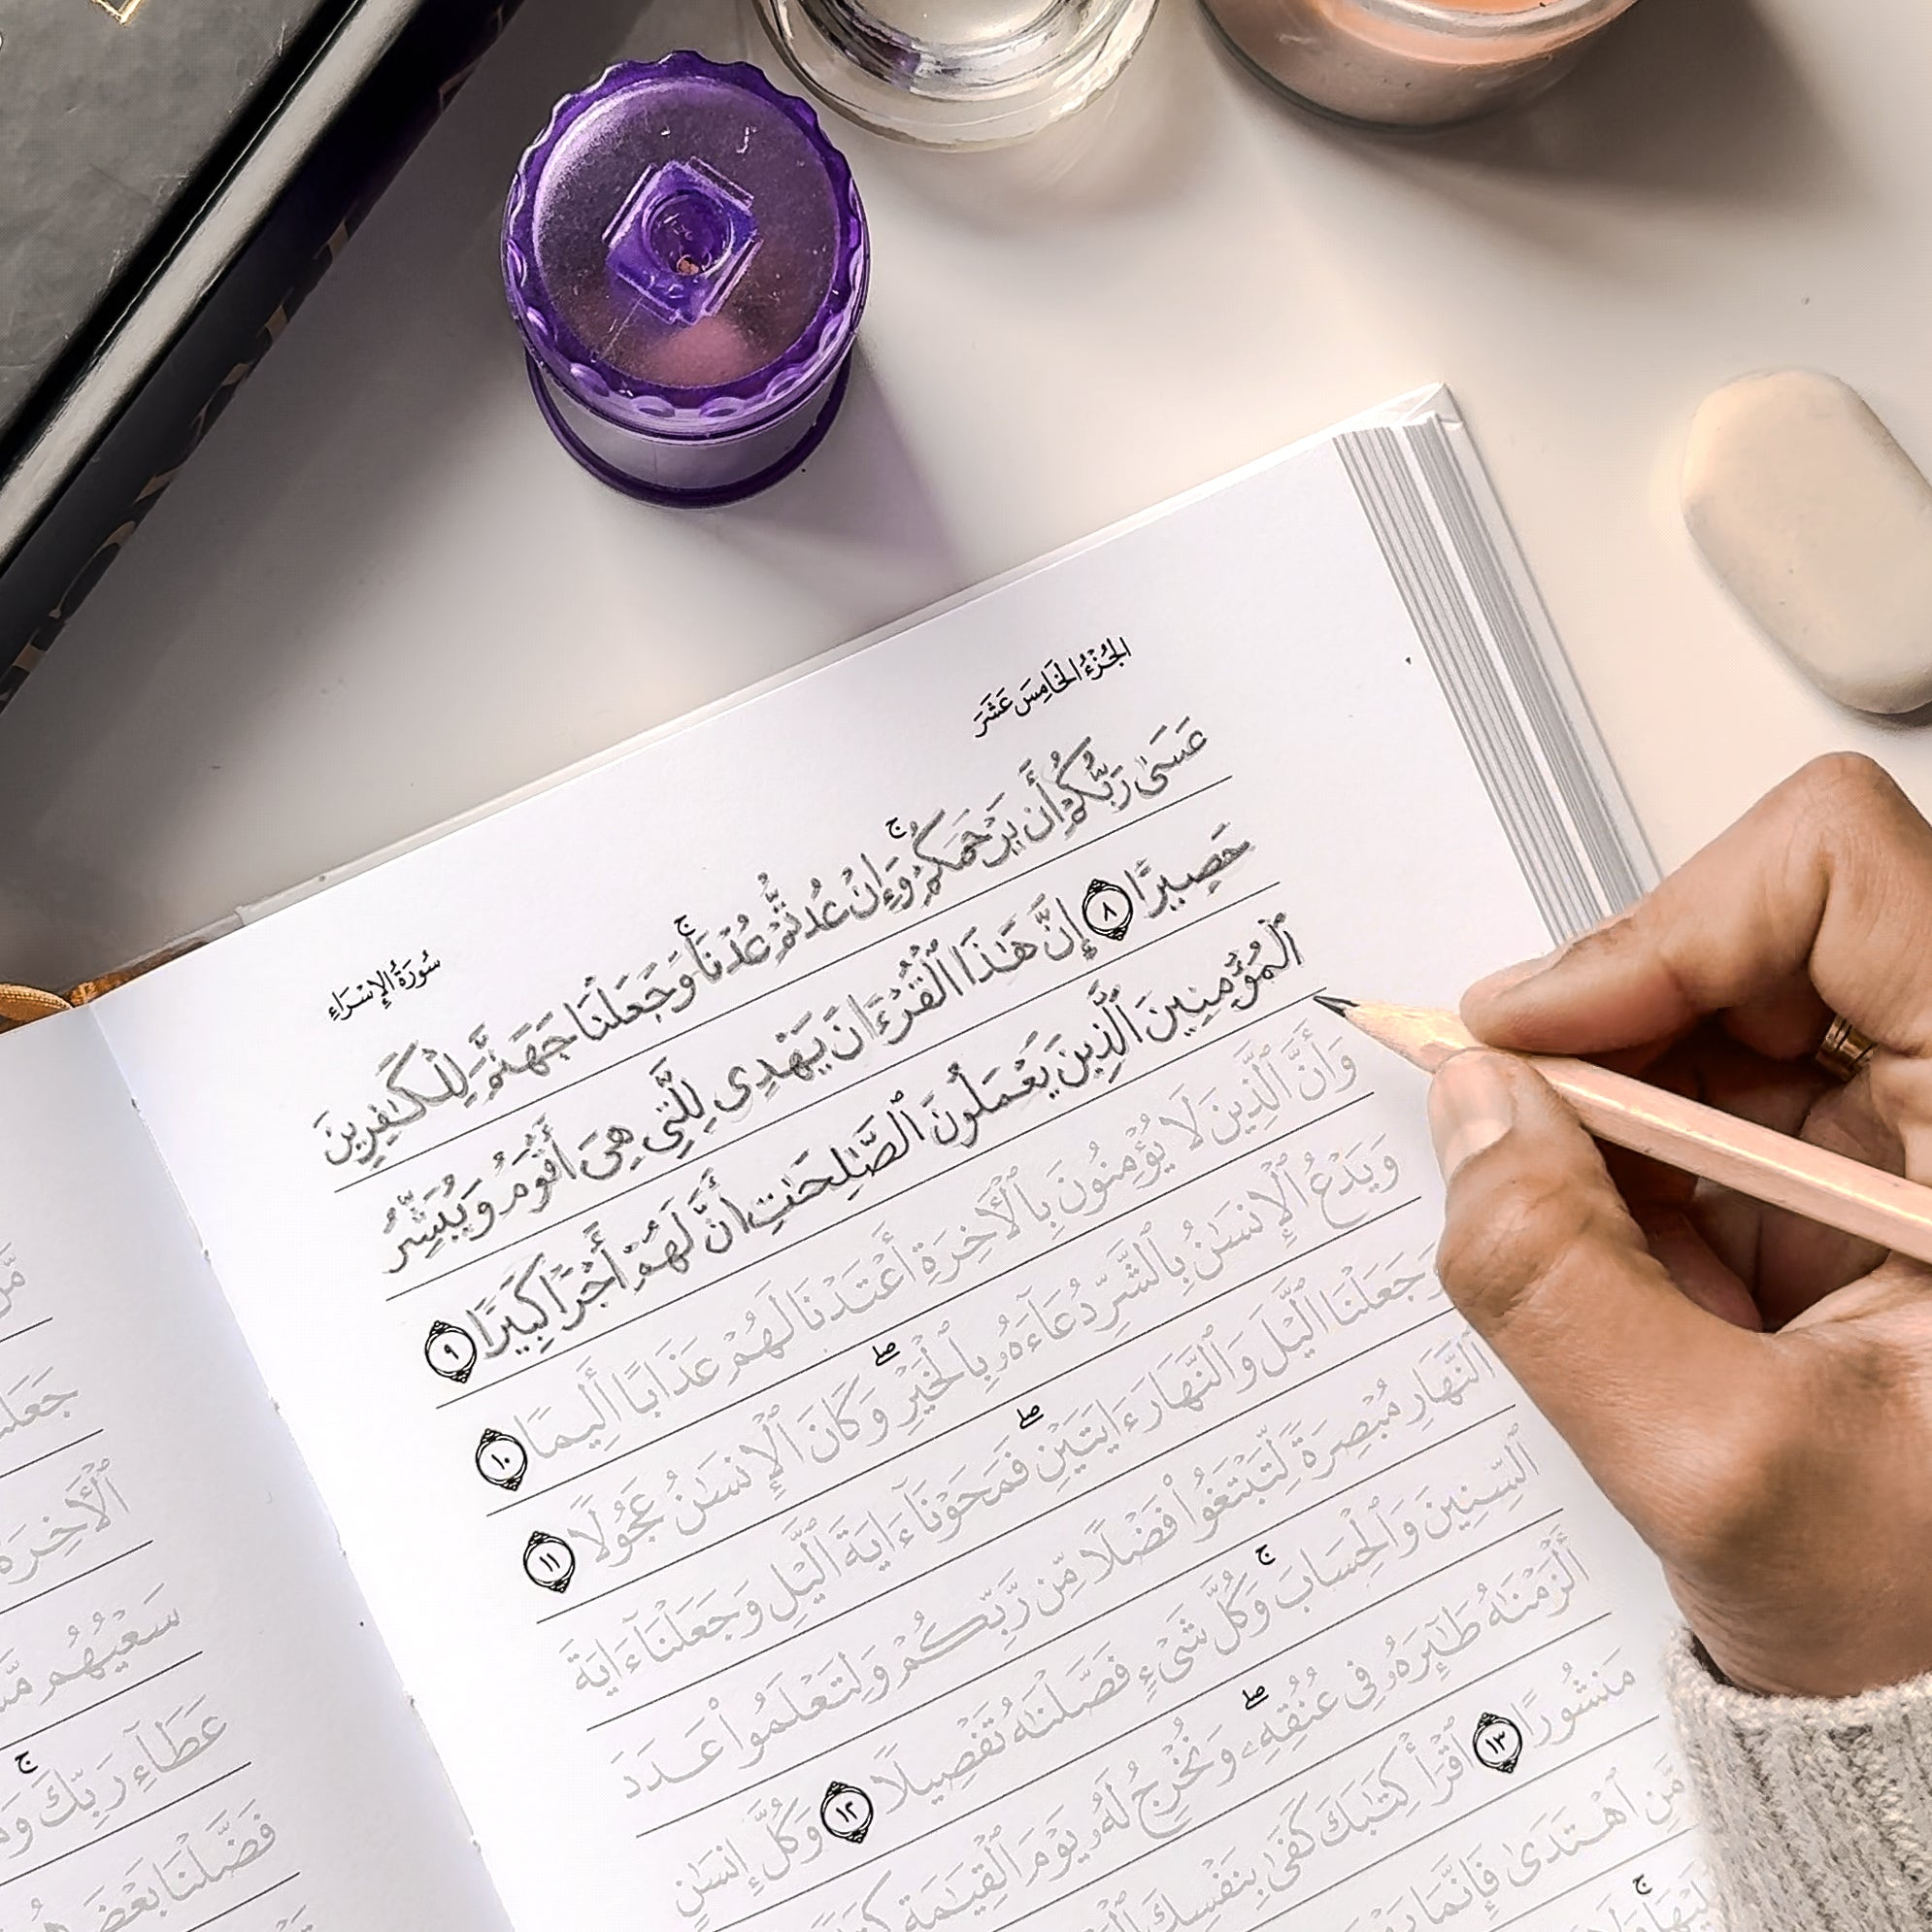 الجُزْءُ الخَامِسَ عَشَرَ
سُورَةُ الإِسْرَاءِ
عَسَىٰ رَبُّكُمْ أَن يَرْحَمَكُمْ ۚ وَإِنْ عُدتُّمْ عُدْنَا ۚ وَجَعَلْنَا جَهَنَّمَ لِلْكَٰفِرِينَ
حَصِيرًا ٨ إِنَّ هَٰذَا ٱلْقُرْءَانَ يَهْدِى لِلَّتِى هِىَ أَقْوَمُ وَيُبَشِّرُ
ٱلْمُؤْمِنِينَ ٱلَّذِينَ يَعْمَلُونَ ٱلصَّٰلِحَٰتِ أَنَّ لَهُمْ أَجْرًا كَبِيرًا ٩
وَأَنَّ ٱلَّذِينَ لَا يُؤْمِنُونَ بِٱلْأَخِرَةِ أَعْتَدْنَا لَهُمْ عَذَابًا أَلِيمًا ١٠
وَيَدْعُ ٱلْإِنسَٰنُ بِٱلشَّرِّ دُعَآءَهُۥ بِٱلْخَيْرِ ۖ وَكَانَ ٱلْإِنسَٰنُ عَجُولًا ١١
وَجَعَلْنَا ٱلَّيْلَ وَٱلنَّهَارَ ءَايَتَيْنِ ۖ فَمَحَوْنَآ ءَايَةَ ٱلَّيْلِ وَجَعَلْنَآ ءَايَةَ
ٱلنَّهَارِ مُبْصِرَةً لِّتَبْتَغُوا۟ فَضْلًا مِّن رَّبِّكُمْ وَلِتَعْلَمُوا۟ عَدَدَ
ٱلسِّنِينَ وَٱلْحِسَابَ ۚ وَكُلَّ شَىْءٍ فَصَّلْنَٰهُ تَفْصِيلًا ١٢ وَكُلَّ إِنسَٰنٍ
أَلْزَمْنَٰهُ طَٰٓئِرَهُۥ فِى عُنُقِهِۦ ۖ وَنُخْرِجُ لَهُۥ يَوْمَ ٱلْقِيَٰمَةِ
مَنشُورًا ١٣ ٱقْرَأْ كِتَٰبَكَ كَفَىٰ بِنَفْسِكَ
مَّنِ ٱهْتَدَىٰ فَإِنَّمَا
ٱلْأَخِرَةَ
سَعْيُهُم
عَطَآءِ رَبِّكَ ۚ
فَضَّلْنَا بَعْضَ